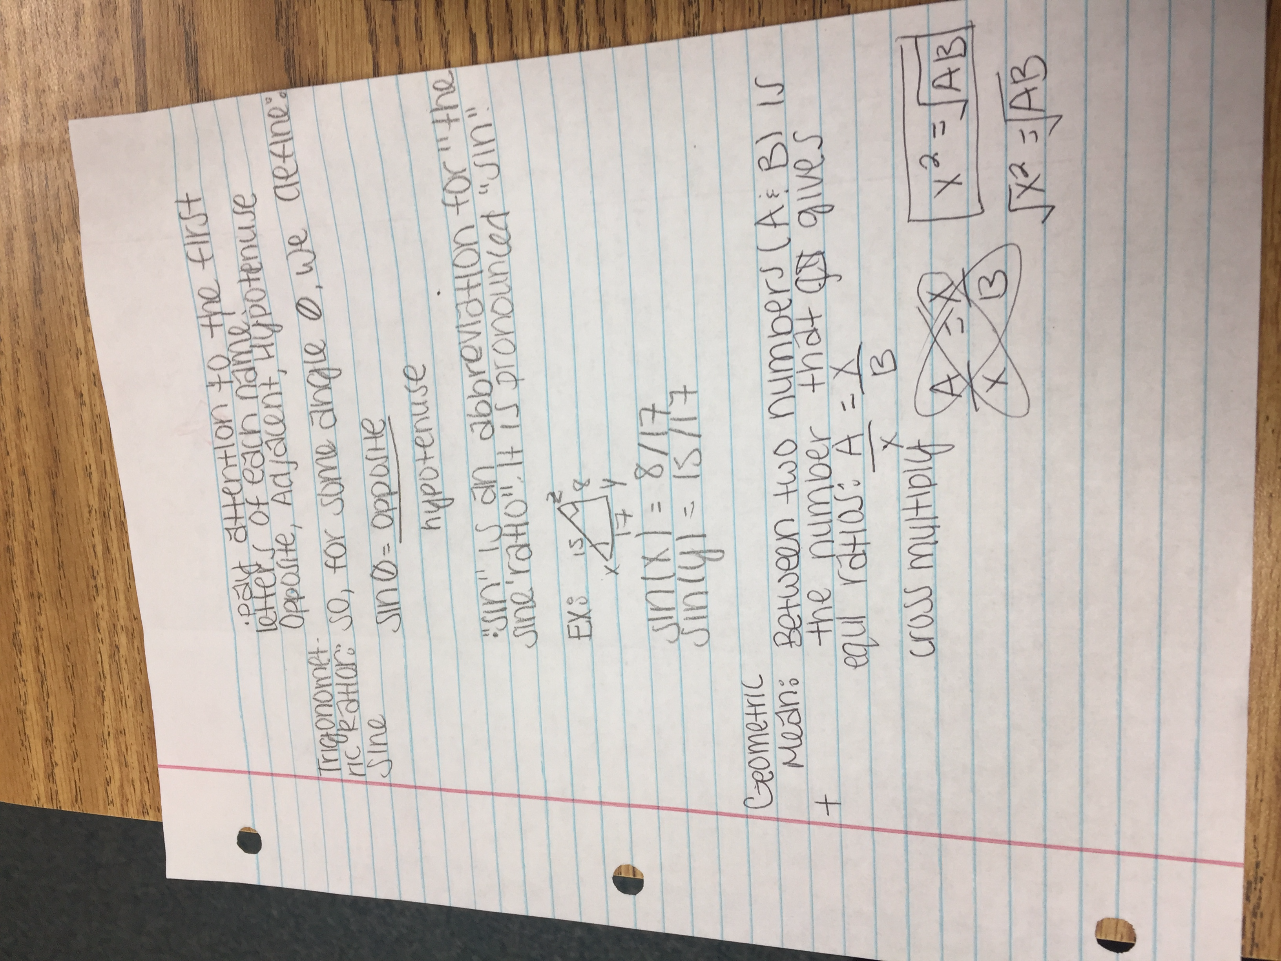 :pay attention to the first
letters of each name
opposite, Adjacent, Hypotenuse
Trigonomet-
ric Ratior: so, for some angle θ, we define:
sine
sin θ = opposite
hypotenuse
:"sin" is an abbreviation for "the
sine ratio". It is pronounced "sin".
EX:
15 z 8
x 17 y
sin(x) = 8/17
sin(y) = 15/17
Geometric
Mean: Between two numbers (A & B) is
+ the number that gives
equl ratios: A/x = x/B
cross multiply
A/x = x/B
x² = √AB
√x² = √AB